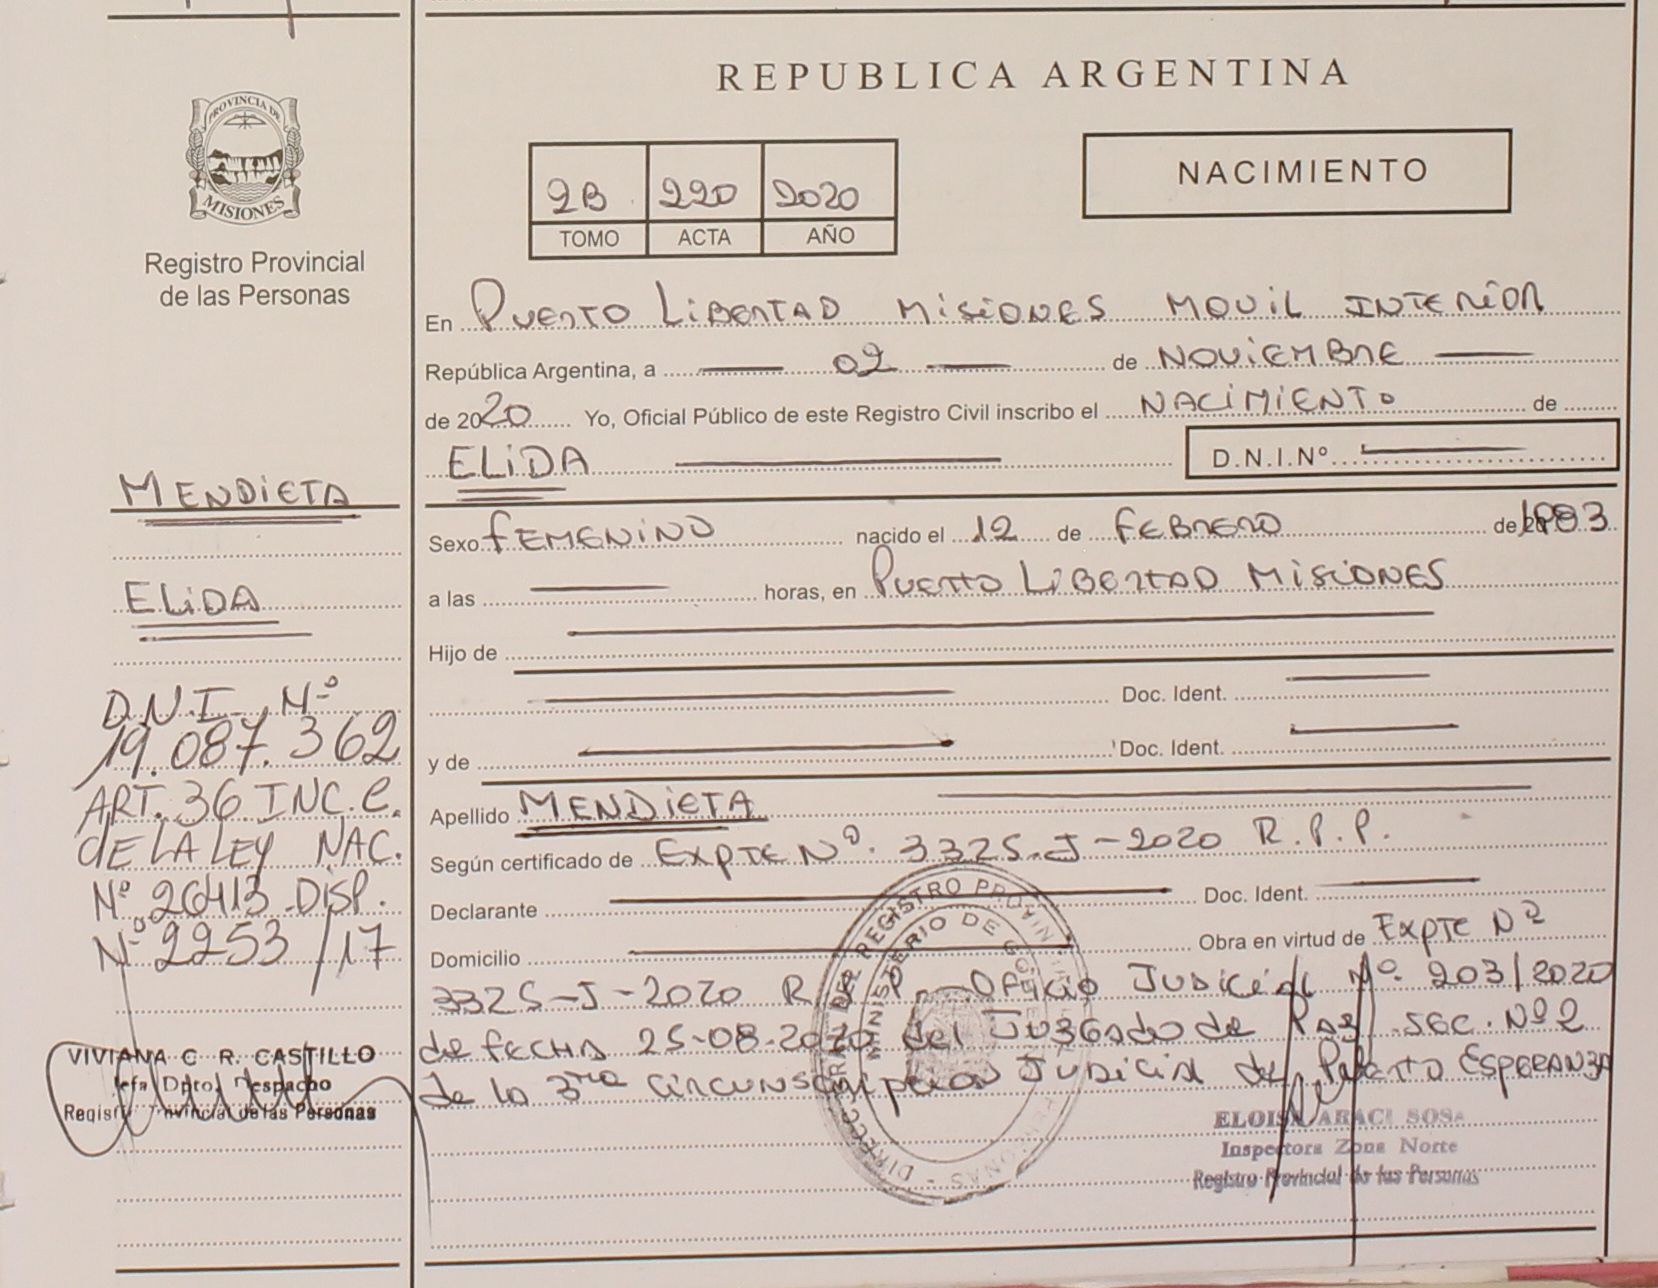 PROVINCIA DE
MISIONES
Registro Provincial
de las Personas
MENDIETA
ELIDA
D.N.I. Nº
19.087.362
ART. 36 INC. C.
DE LA LEY NAC.
Nº 26413 DISP.
Nº 2253/17
VIVIANA C R. CASTILLO
Jefa Dpto. Despacho
Registro Provincial de las Personas
REPUBLICA ARGENTINA
2B 220 2020
TOMO ACTA AÑO
NACIMIENTO
En PUERTO LIBERTAD MISIONES MOVIL INTERIOR
República Argentina, a 02 de NOVIEMBRE
de 2020 Yo, Oficial Público de este Registro Civil inscribo el NACIMIENTO de
ELIDA D.N.I.Nº
Sexo FEMENINO nacido el 12 de FEBRERO de 1983
a las horas, en PUERTO LIBERTAD MISIONES
Hijo de
Doc. Ident.
y de Doc. Ident.
Apellido MENDIETA
Según certificado de EXPTE Nº. 3325-J-2020 R.P.P.
Declarante Doc. Ident.
Domicilio Obra en virtud de EXPTE Nº
3325-J-2020 R.P.P. OFICIO JUDICIAL Nº. 203/2020
de FECHA 25-08-2020 del JUZGADO de PAZ SEC. Nº 2
de la 3ra CIRCUNSCRIPCION JUDICIAL de PUERTO ESPERANZA
MINISTERIO DE
ELOISA ARACI SOSA
Inspectora Zona Norte
Registro Provincial de las Personas